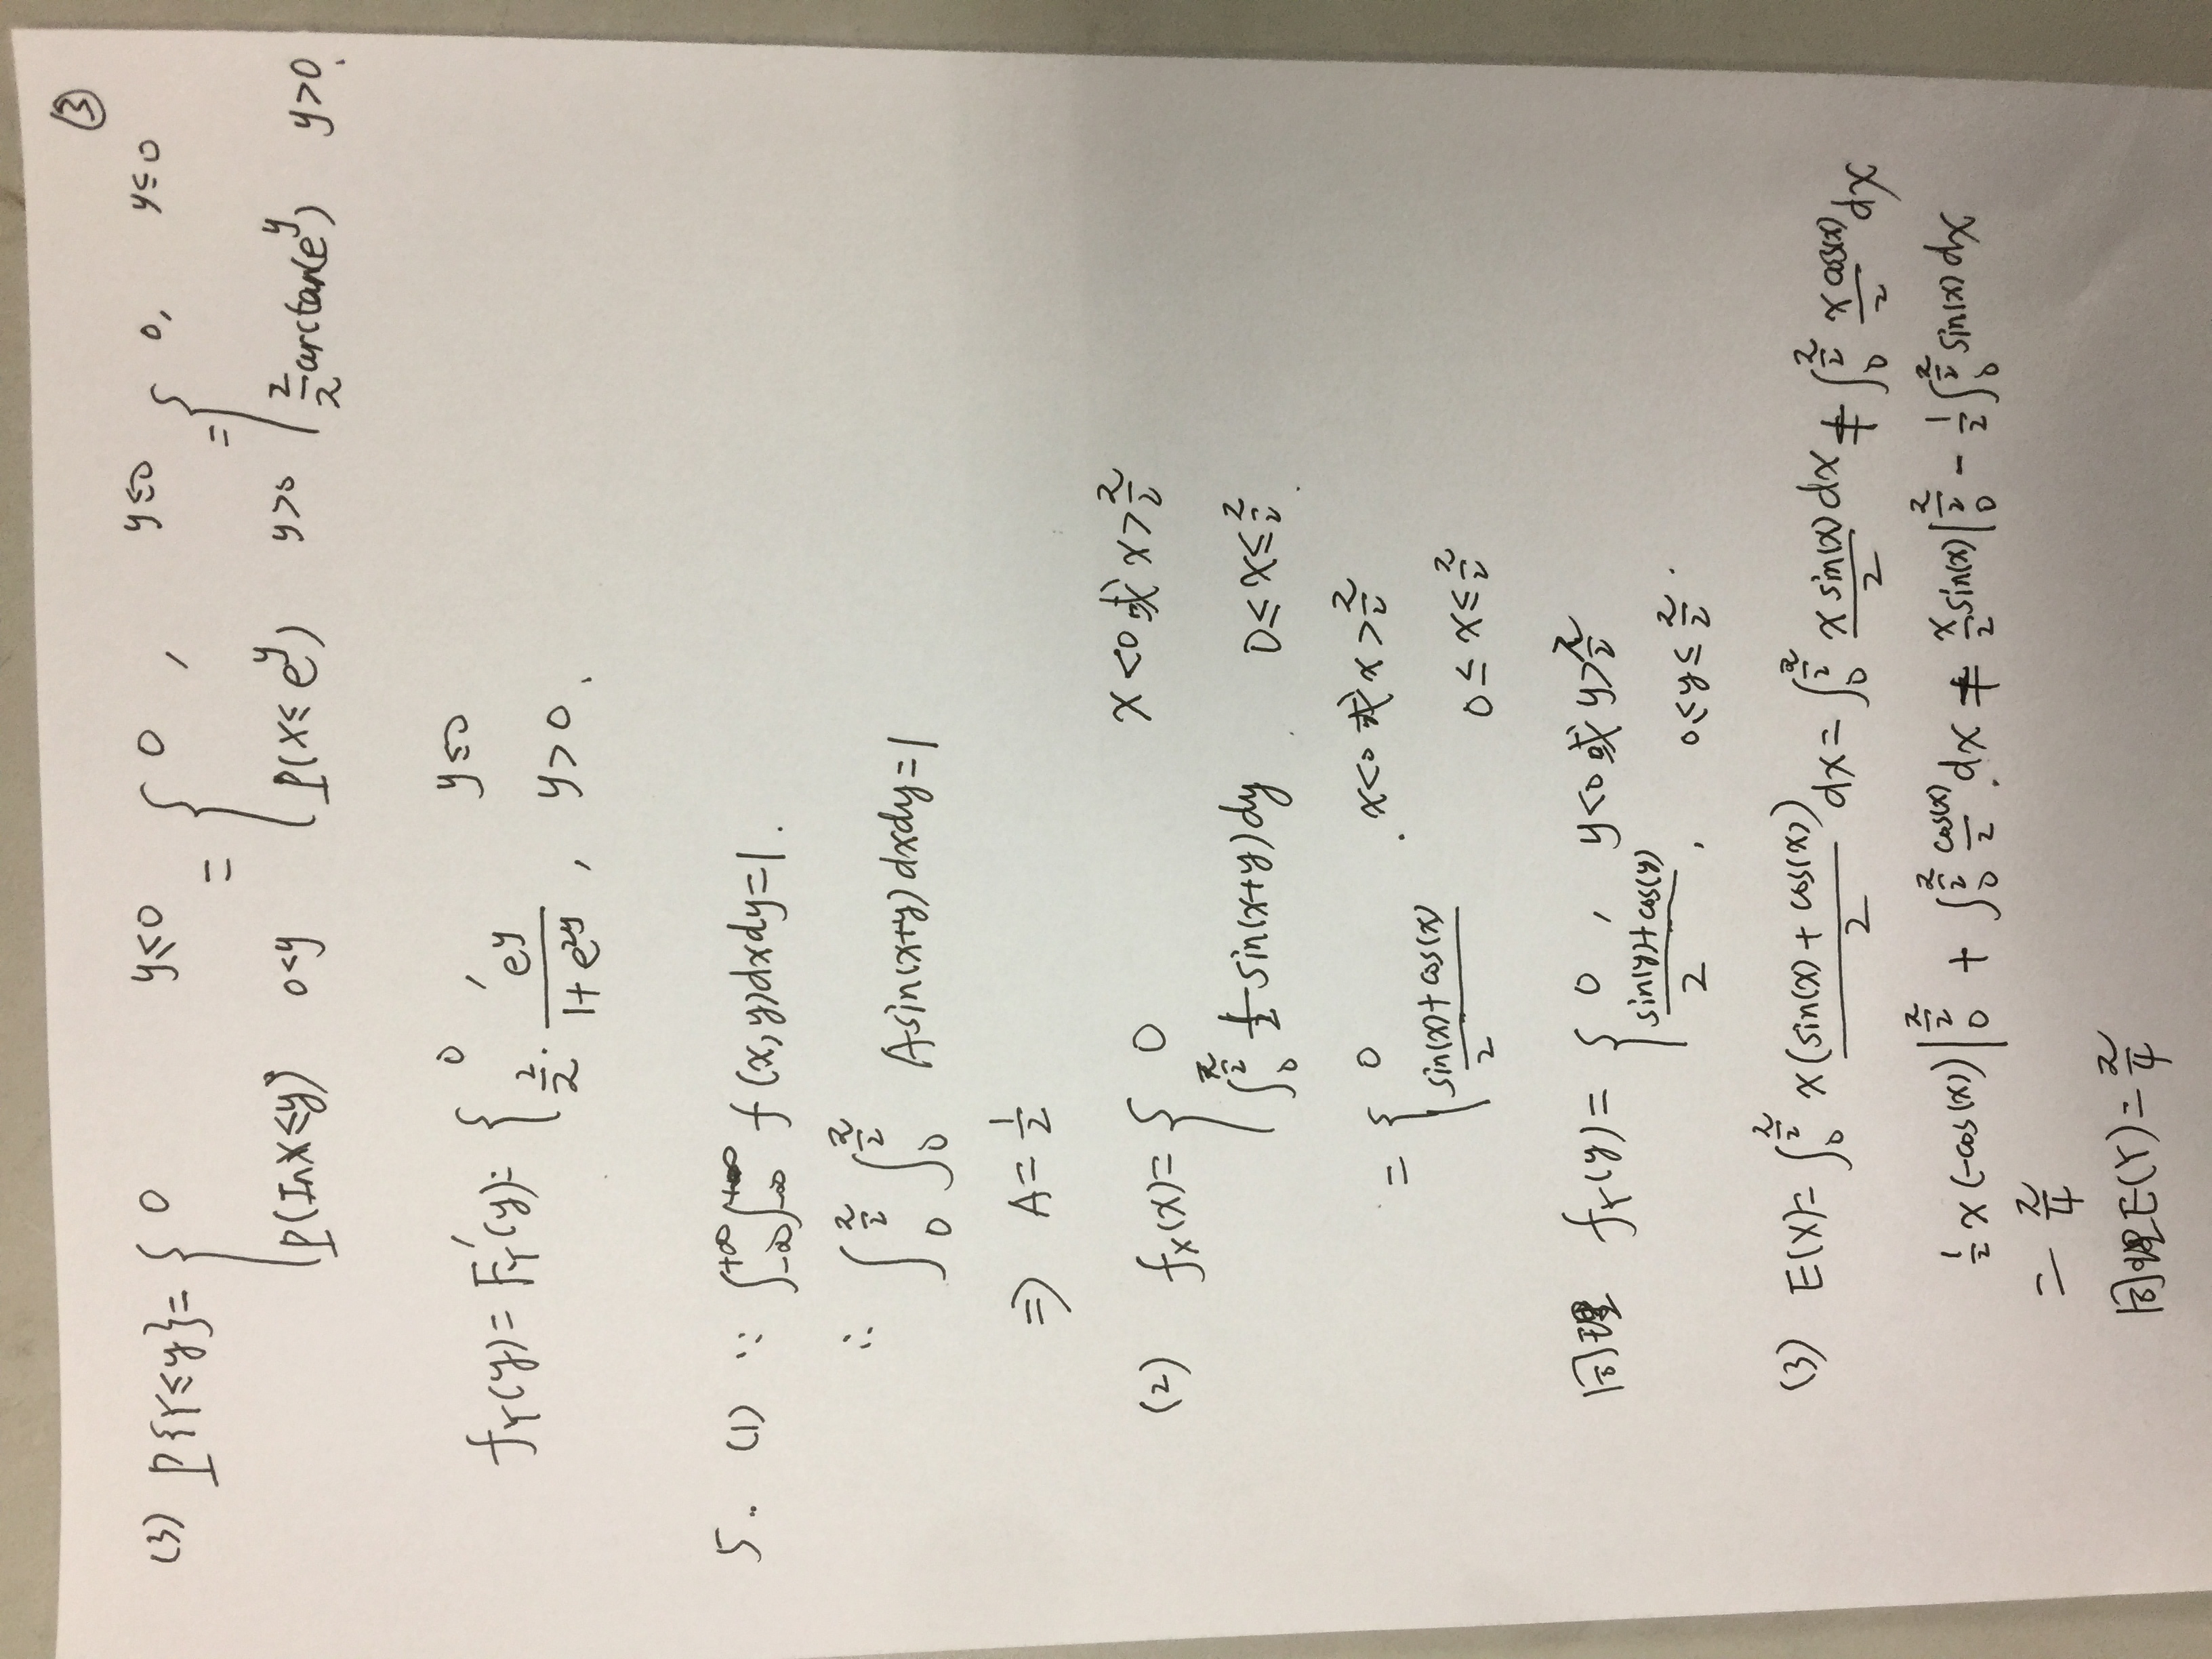 ③
(3) P{Y≤y}= { 0 y≤0 ; P(lnX≤y) 0<y = { 0, y≤0 ; P(X≤e^y) y>0 = { 0, y≤0 ; 2/π arctan(e^y) y>0.
f_Y(y)=F_Y'(y)= { 0, y≤0 ; 2/π · e^y/(1+e^{2y}), y>0.
5. (1) ∵ ∫_{-∞}^{+∞}∫_{-∞}^{+∞} f(x,y)dxdy=1.
∴ ∫_0^{π/2} ∫_0^{π/2} Asin(x+y)dxdy=1
⇒ A=1/2
(2) f_X(x)= { 0 x<0或x>π/2 ; ∫_0^{π/2} 1/2 sin(x+y)dy 0≤x≤π/2.
= { 0 x<0或x>π/2 ; (sin(x)+cos(x))/2 0≤x≤π/2
同理 f_Y(y)= { 0, y<0或y>π/2 ; (sin(y)+cos(y))/2, 0≤y≤π/2.
(3) E(X)=∫_0^{π/2} x(sin(x)+cos(x))/2 dx=∫_0^{π/2} xsin(x)/2 dx+∫_0^{π/2} xcos(x)/2 dx
1/2 x(-cos(x))|_0^{π/2} + ∫_0^{π/2} cos(x)/2 dx + x/2 sin(x)|_0^{π/2} - 1/2∫_0^{π/2} sin(x)dx
= π/4
同理E(Y)=π/4